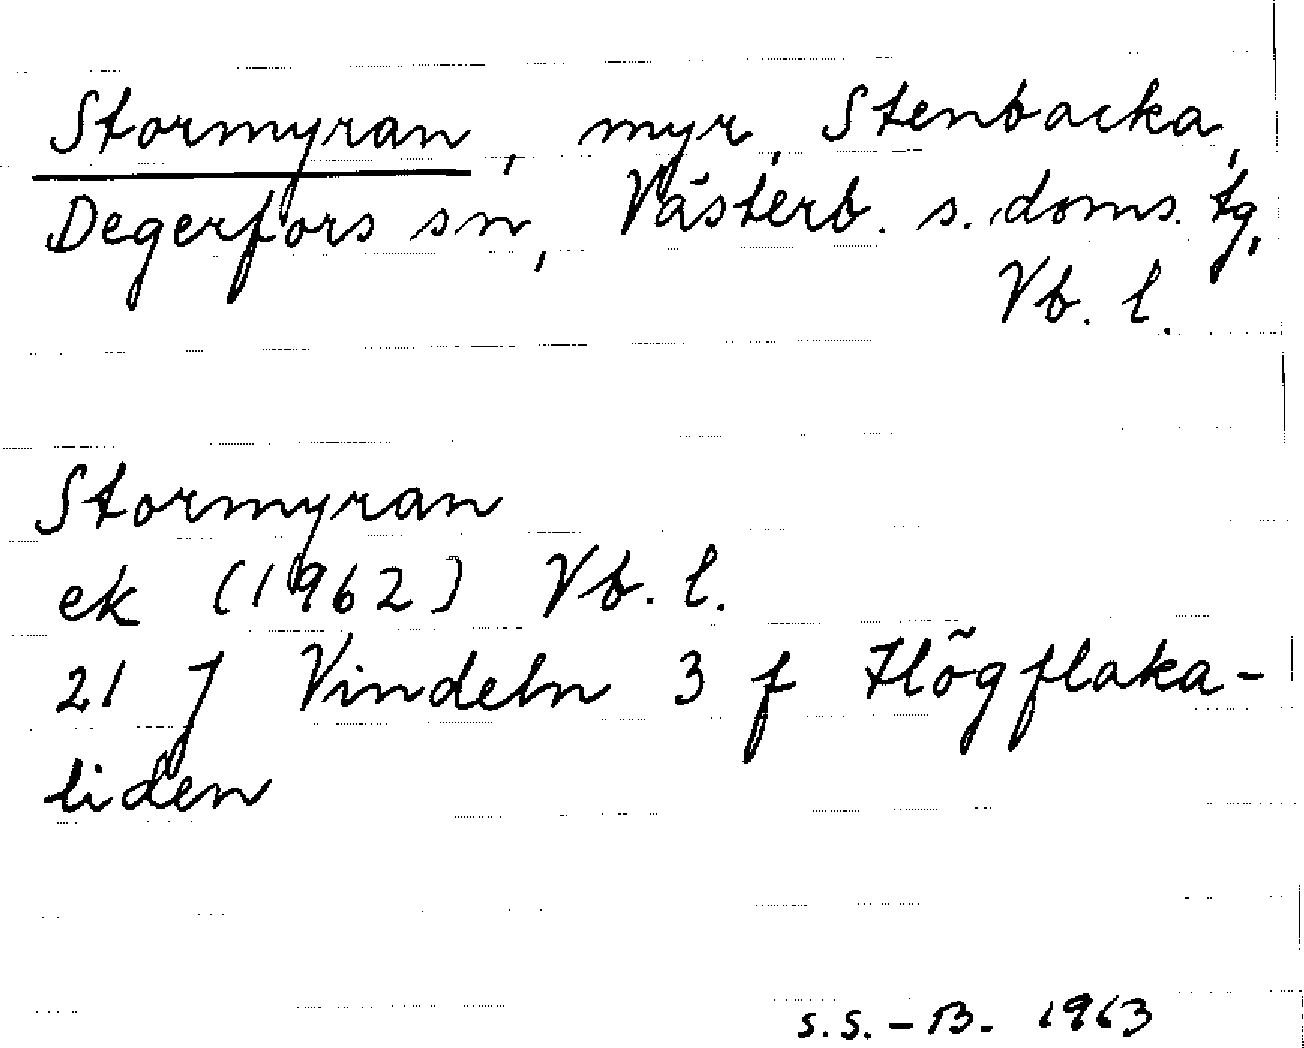 Stormyran, myr, Stenbacka,
Degerfors sn, Västerb. s. doms. tg,
Vb. l.
Stormyran
ek (1962) Vb. l.
21 J Vindeln 3 f Högflaka-
liden
S.S.-B. 1963